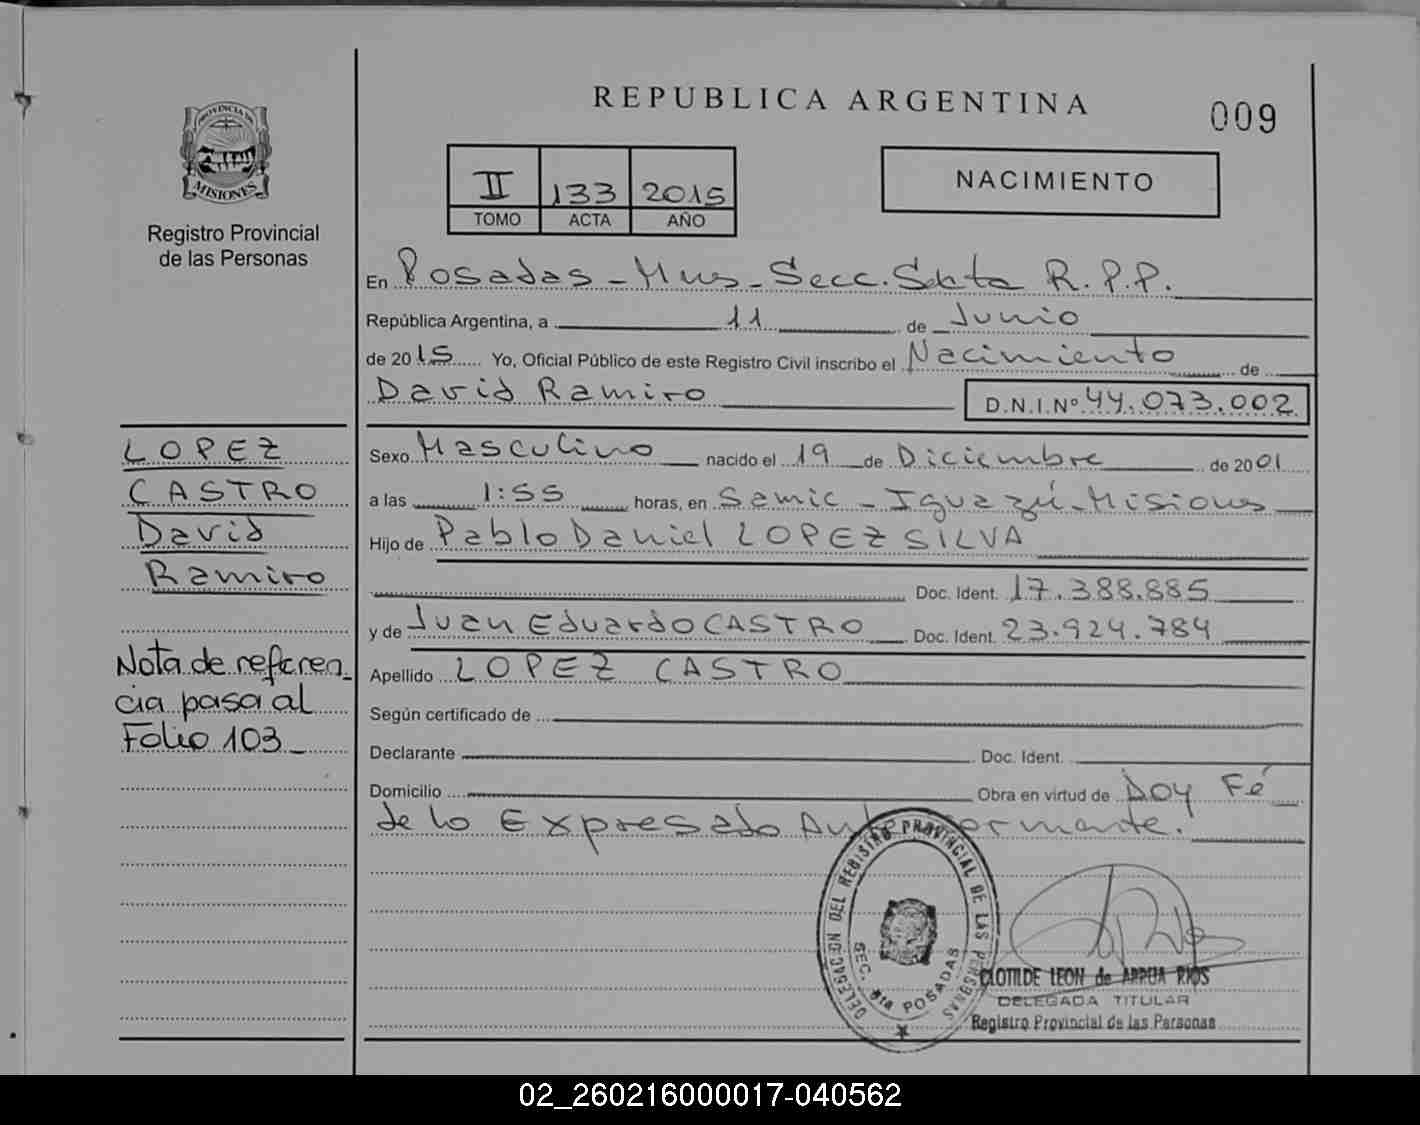 REPUBLICA ARGENTINA
009
PROVINCIA DE
MISIONES
Registro Provincial
de las Personas
II 133 2015
TOMO ACTA AÑO
NACIMIENTO
En Posadas - Mnes - Secc. Sexta R.P.P.
República Argentina, a 11 de Junio
de 2015 Yo, Oficial Público de este Registro Civil inscribo el Nacimiento de
David Ramiro D.N.I.Nº 44.073.002
Sexo Masculino nacido el 19 de Diciembre de 2001
a las 1:55 horas, en Samic - Iguazú - Misiones
Hijo de Pablo Daniel LOPEZ SILVA
Doc. Ident. 17.388.885
y de Juan Eduardo CASTRO Doc. Ident. 23.924.784
Apellido LOPEZ CASTRO
Según certificado de
Declarante Doc. Ident.
Domicilio Obra en virtud de Doy Fé
de lo Expresado Anteriormante.
LOPEZ
CASTRO
David
Ramiro
Nota de referen_
cia pasa al
Folio 103_
DELEGACION DEL REGISTRO PROVINCIAL DE LAS PERSONAS
SEC. 6ta POSADAS
CLOTILDE LEON de ARRUA RIOS
DELEGADA TITULAR
Registro Provincial de las Personas
02_260216000017-040562